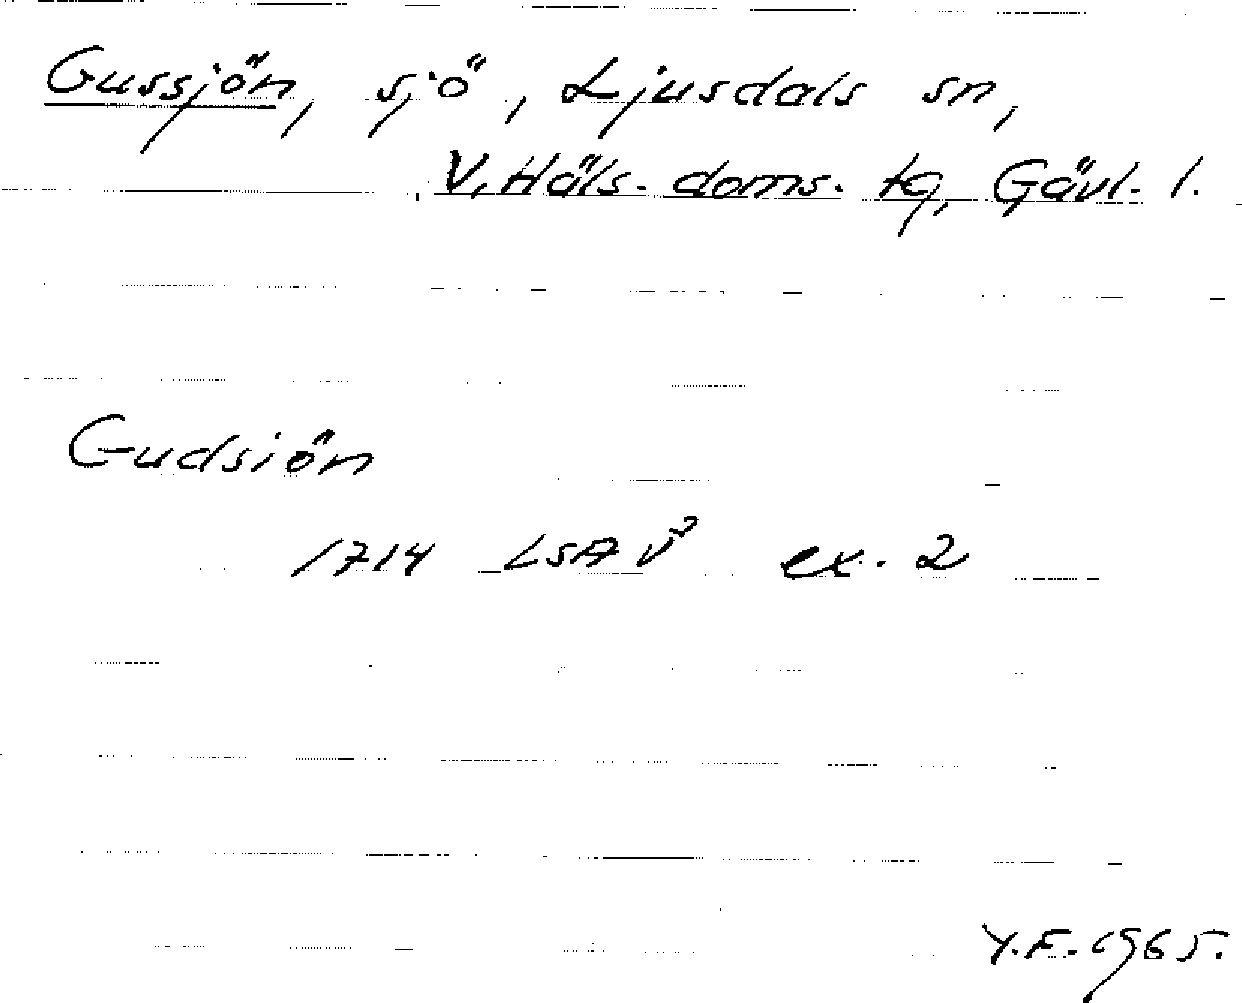 Gussjön, sjö, Ljusdals sn,
V. Häls. doms. tg, Gävl. l.
Gudsiön
1714 LSA V³ ex. 2
Y.F. 1965.